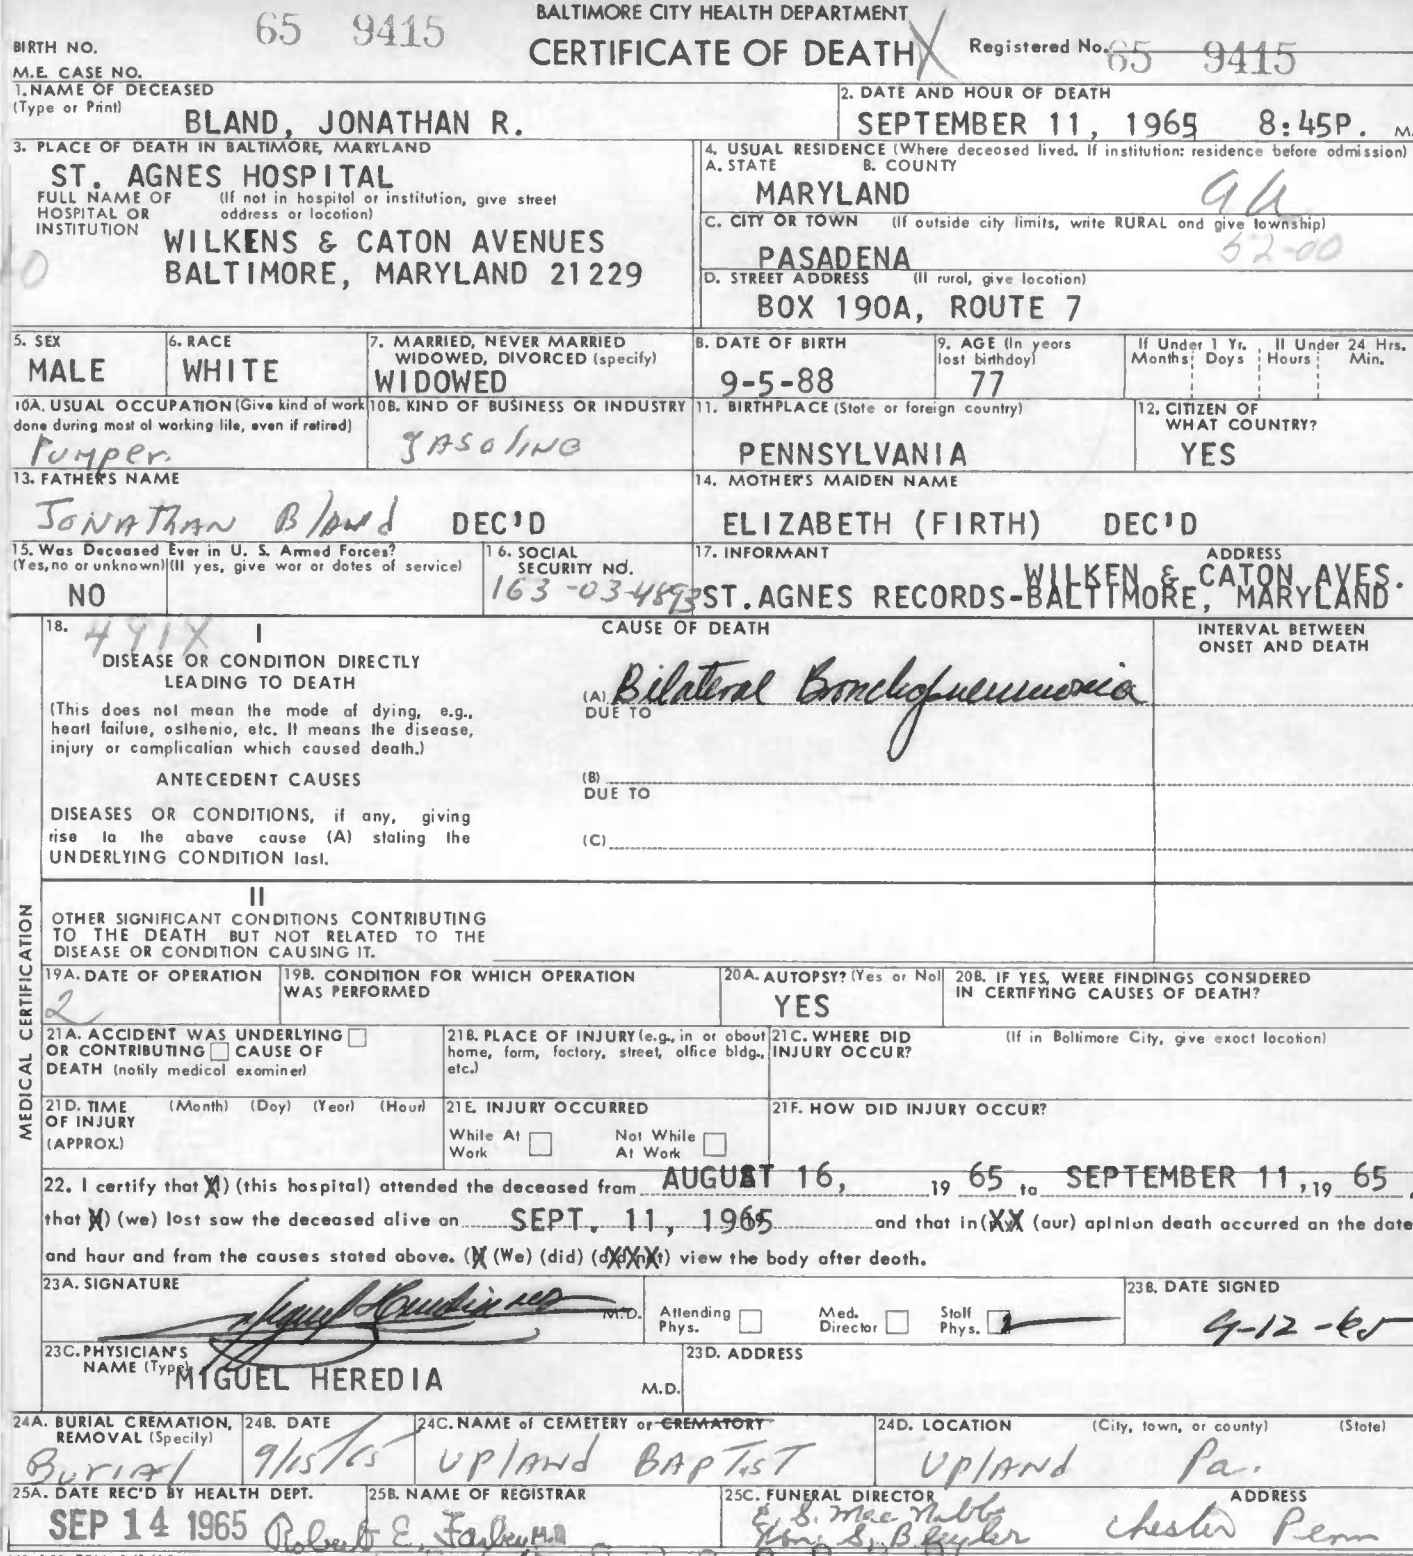 BALTIMORE CITY HEALTH DEPARTMENT
65 9415
BIRTH NO.
CERTIFICATE OF DEATH
Registered No. 65 9415
M.E. CASE NO.
1. NAME OF DECEASED
(Type or Print)
BLAND, JONATHAN R.
2. DATE AND HOUR OF DEATH
SEPTEMBER 11, 1965 8:45P. M.
3. PLACE OF DEATH IN BALTIMORE, MARYLAND
ST. AGNES HOSPITAL
FULL NAME OF HOSPITAL OR INSTITUTION
(If not in hospital or institution, give street address or location)
WILKENS & CATON AVENUES
BALTIMORE, MARYLAND 21229
4. USUAL RESIDENCE (Where deceased lived. If institution: residence before admission)
A. STATE B. COUNTY
MARYLAND
C. CITY OR TOWN (If outside city limits, write RURAL and give township)
52-00
PASADENA
D. STREET ADDRESS (If rural, give location)
BOX 190A, ROUTE 7
5. SEX
MALE
6. RACE
WHITE
7. MARRIED, NEVER MARRIED
WIDOWED, DIVORCED (specify)
WIDOWED
8. DATE OF BIRTH
9-5-88
9. AGE (In years last birthday)
77
If Under 1 Yr. If Under 24 Hrs.
Months Days Hours Min.
10A. USUAL OCCUPATION (Give kind of work
done during most of working life, even if retired)
Pumper.
10B. KIND OF BUSINESS OR INDUSTRY
gasoline
11. BIRTHPLACE (State or foreign country)
PENNSYLVANIA
12. CITIZEN OF WHAT COUNTRY?
YES
13. FATHER'S NAME
Jonathan Bland DEC'D
14. MOTHER'S MAIDEN NAME
ELIZABETH (FIRTH) DEC'D
15. Was Deceased Ever in U. S. Armed Forces?
(Yes, no or unknown) (If yes, give war or dates of service)
NO
16. SOCIAL SECURITY NO.
163-03-4893
17. INFORMANT ADDRESS
WILKEN & CATON AVES.
ST. AGNES RECORDS-BALTIMORE, MARYLAND
18. 491X I
DISEASE OR CONDITION DIRECTLY
LEADING TO DEATH
(This does not mean the mode of dying, e.g.,
heart failure, asthenia, etc. It means the disease,
injury or complication which caused death.)
CAUSE OF DEATH
INTERVAL BETWEEN
ONSET AND DEATH
(A) Bilateral Bronchopneumonia
DUE TO
ANTECEDENT CAUSES
(B)
DUE TO
DISEASES OR CONDITIONS, if any, giving
rise to the above cause (A) stating the
UNDERLYING CONDITION last.
(C)
II
OTHER SIGNIFICANT CONDITIONS CONTRIBUTING
TO THE DEATH BUT NOT RELATED TO THE
DISEASE OR CONDITION CAUSING IT.
MEDICAL CERTIFICATION
19A. DATE OF OPERATION
2
19B. CONDITION FOR WHICH OPERATION
WAS PERFORMED
20A. AUTOPSY? (Yes or No)
YES
20B. IF YES, WERE FINDINGS CONSIDERED
IN CERTIFYING CAUSES OF DEATH?
21A. ACCIDENT WAS UNDERLYING
OR CONTRIBUTING CAUSE OF
DEATH (notify medical examiner)
21B. PLACE OF INJURY (e.g., in or about
home, farm, factory, street, office bldg.,
etc.)
21C. WHERE DID
INJURY OCCUR?
(If in Baltimore City, give exact location)
21D. TIME
OF INJURY
(APPROX.)
(Month) (Day) (Year) (Hour)
21E. INJURY OCCURRED
While At Work
Not While At Work
21F. HOW DID INJURY OCCUR?
22. I certify that (I) (this hospital) attended the deceased from AUGUST 16, 19 65 to SEPTEMBER 11, 19 65,
that (I) (we) last saw the deceased alive on SEPT. 11, 1965 and that in (my) (our) opinion death occurred on the date
and hour and from the causes stated above. (I) (We) (did) (did not) view the body after death.
23A. SIGNATURE
M.D.
Attending Phys.
Med. Director
Staff Phys.
23B. DATE SIGNED
9-12-65
23C. PHYSICIAN'S
NAME (Type)
MIGUEL HEREDIA M.D.
23D. ADDRESS
24A. BURIAL CREMATION,
REMOVAL (Specify)
Burial
24B. DATE
9/15/65
24C. NAME of CEMETERY or CREMATORY
Upland Baptist
24D. LOCATION (City, town, or county) (State)
Upland Pa.
25A. DATE REC'D BY HEALTH DEPT.
SEP 14 1965
25B. NAME OF REGISTRAR
Robert E. Farber M.D.
25C. FUNERAL DIRECTOR ADDRESS
Chester Penn